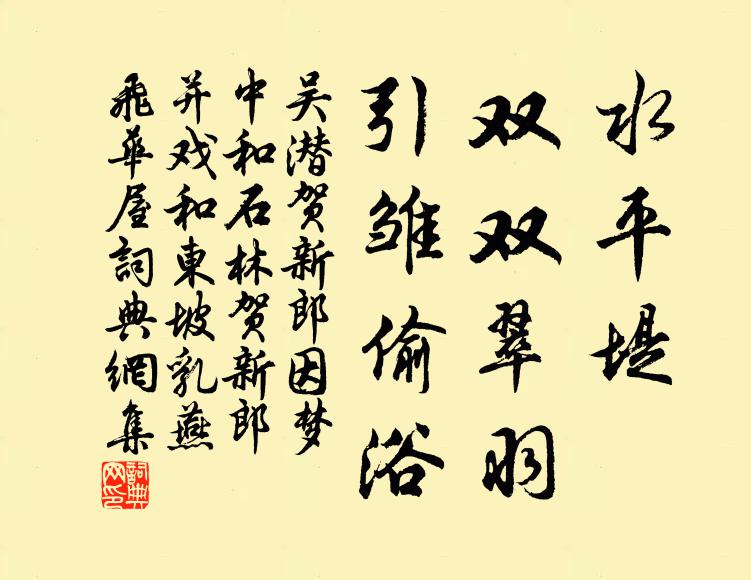 水平堤
双双翠羽
引雏偷浴
吴潜贺新郎因梦
中和石林贺新郎
并戏和東坡乳燕
飛華屋詞典網集
詞典网印